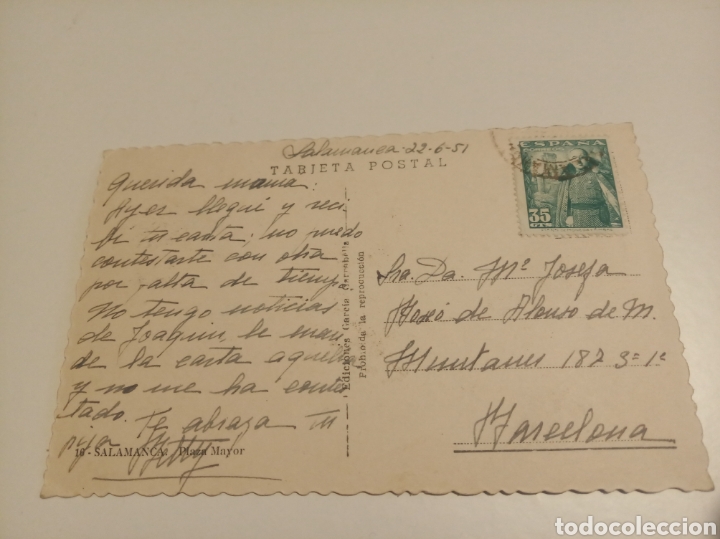 Salamanca-22-6-51
TARJETA POSTAL
Querida mama:
Ayer llegué y reci
bí tu carta; no puedo
contestarte con otra
por falta de tiempo
No tengo noticias
de Joaquin, le man
de la carta aquella
y no me ha contes
tado. Te abraza tu
hija
16 - SALAMANCA. Plaza Mayor
Ediciones García Garrabella
Prohibida la reproducción
ESPAÑA
35
CTS
Sra. Da. Mª Josefa
de Alonso de M.
Muntaner 187 3º 1ª
Barcelona
todocoleccion